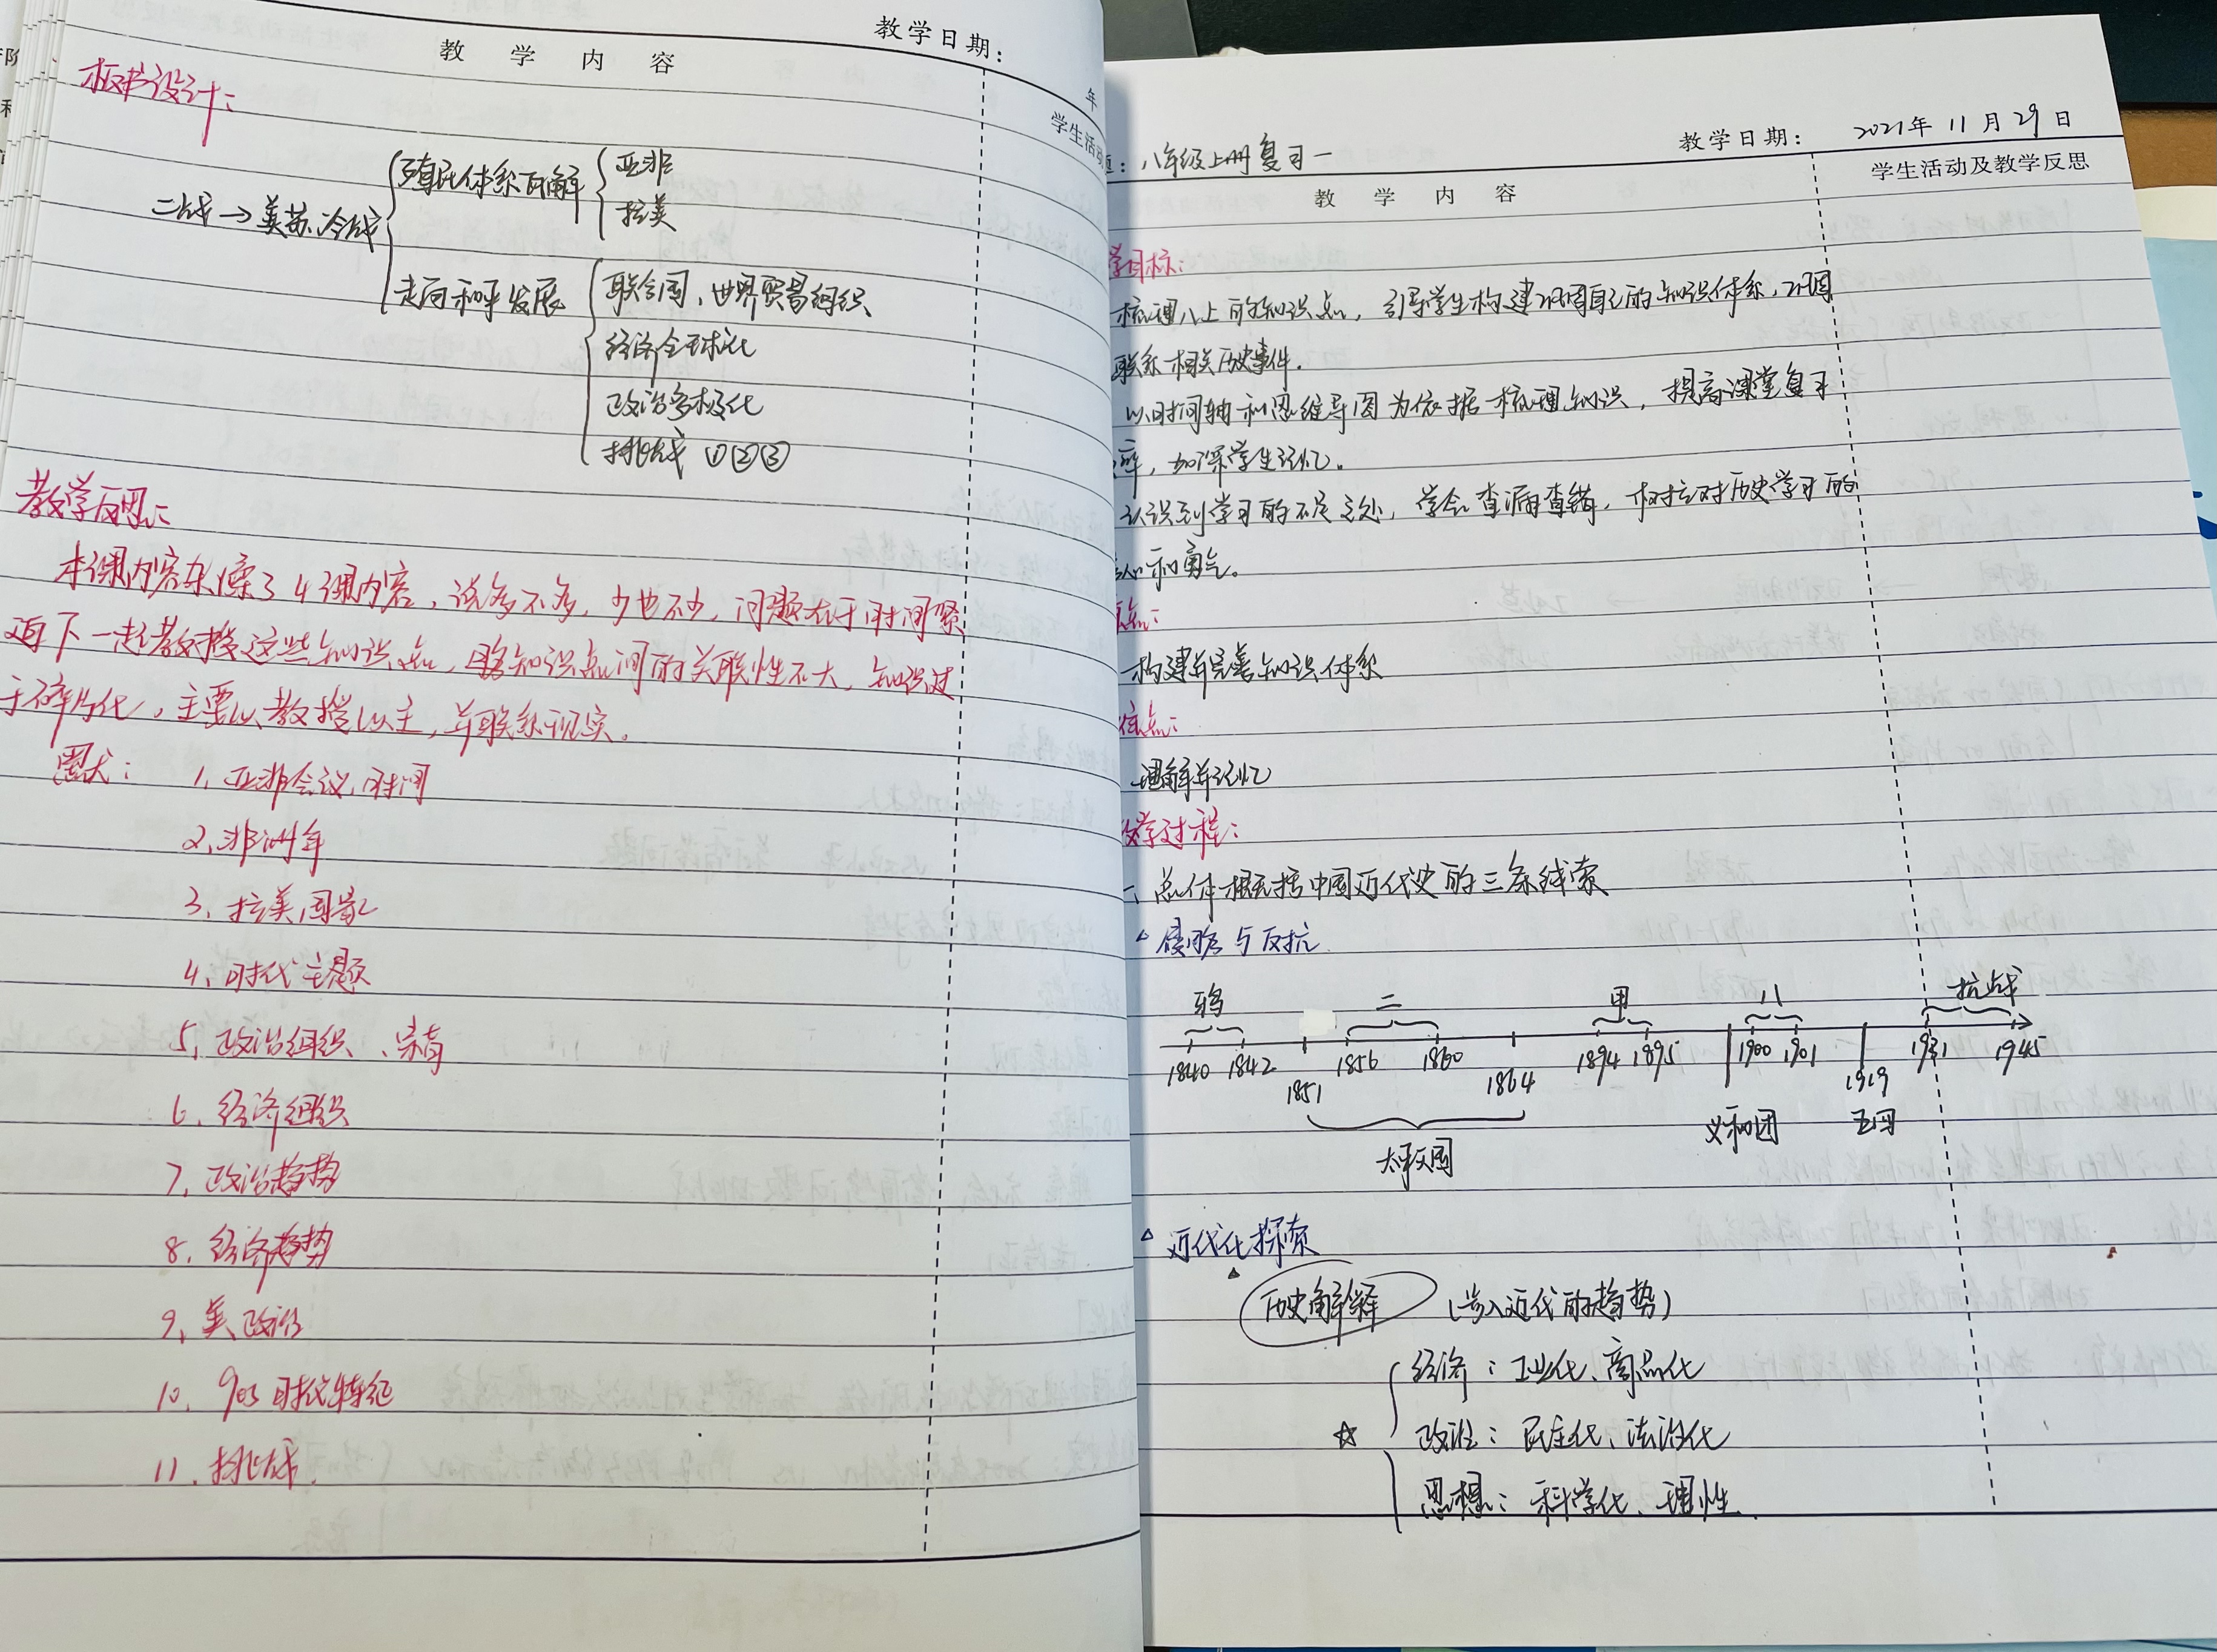 教学日期：
年
教 学 内 容
学生活动
板书设计：
二战→美苏冷战
殖民体系瓦解
亚非
拉美
走向和平发展
联合国、世界贸易组织
经济全球化
政治多极化
挑战 ①②③
教学反思：
本课内容杂糅了4课内容，说多不多，少也不少，问题在于时间紧
迫下一起教授这些知识点，且各知识点间的关联性不大，知识过
于碎片化，主要以教授以主，并联系现实。
1、亚非会议，时间
2、非洲年
3、拉美，国家
4、时代主题
5、政治组织、宗旨
6、经济组织
7、政治趋势
8、经济趋势
9、美政治
10、90s时代特征
11、挑战
教学日期： 2021年 11月 29日
题：八年级上册复习一
教 学 内 容
学生活动及教学反思
学目标：
梳理八上的知识点，引导学生构建巩固自己的知识体系，巩固
联系相关历史事件。
以时间轴和思维导图为依据梳理知识，提高课堂复习
率，加深学生记忆。
认识到学习的不足之处，学会查漏查错，树立对历史学习的
心和勇气。
点：
构建并完善知识体系
点：
理解并记忆
学过程：
一、总体概括中国近代史的三条线索
△ 侵略与反抗
鸦 二 甲 八 抗战
1840 1842 1851 1856 1860 1864 1894 1895 1900 1901 1919 1931 1945
太平天国 义和团 五四
△ 近代化探索
历史解释 （步入近代的趋势）
经济：工业化、商品化
☆ 政治：民主化、法治化
思想：科学化、理性